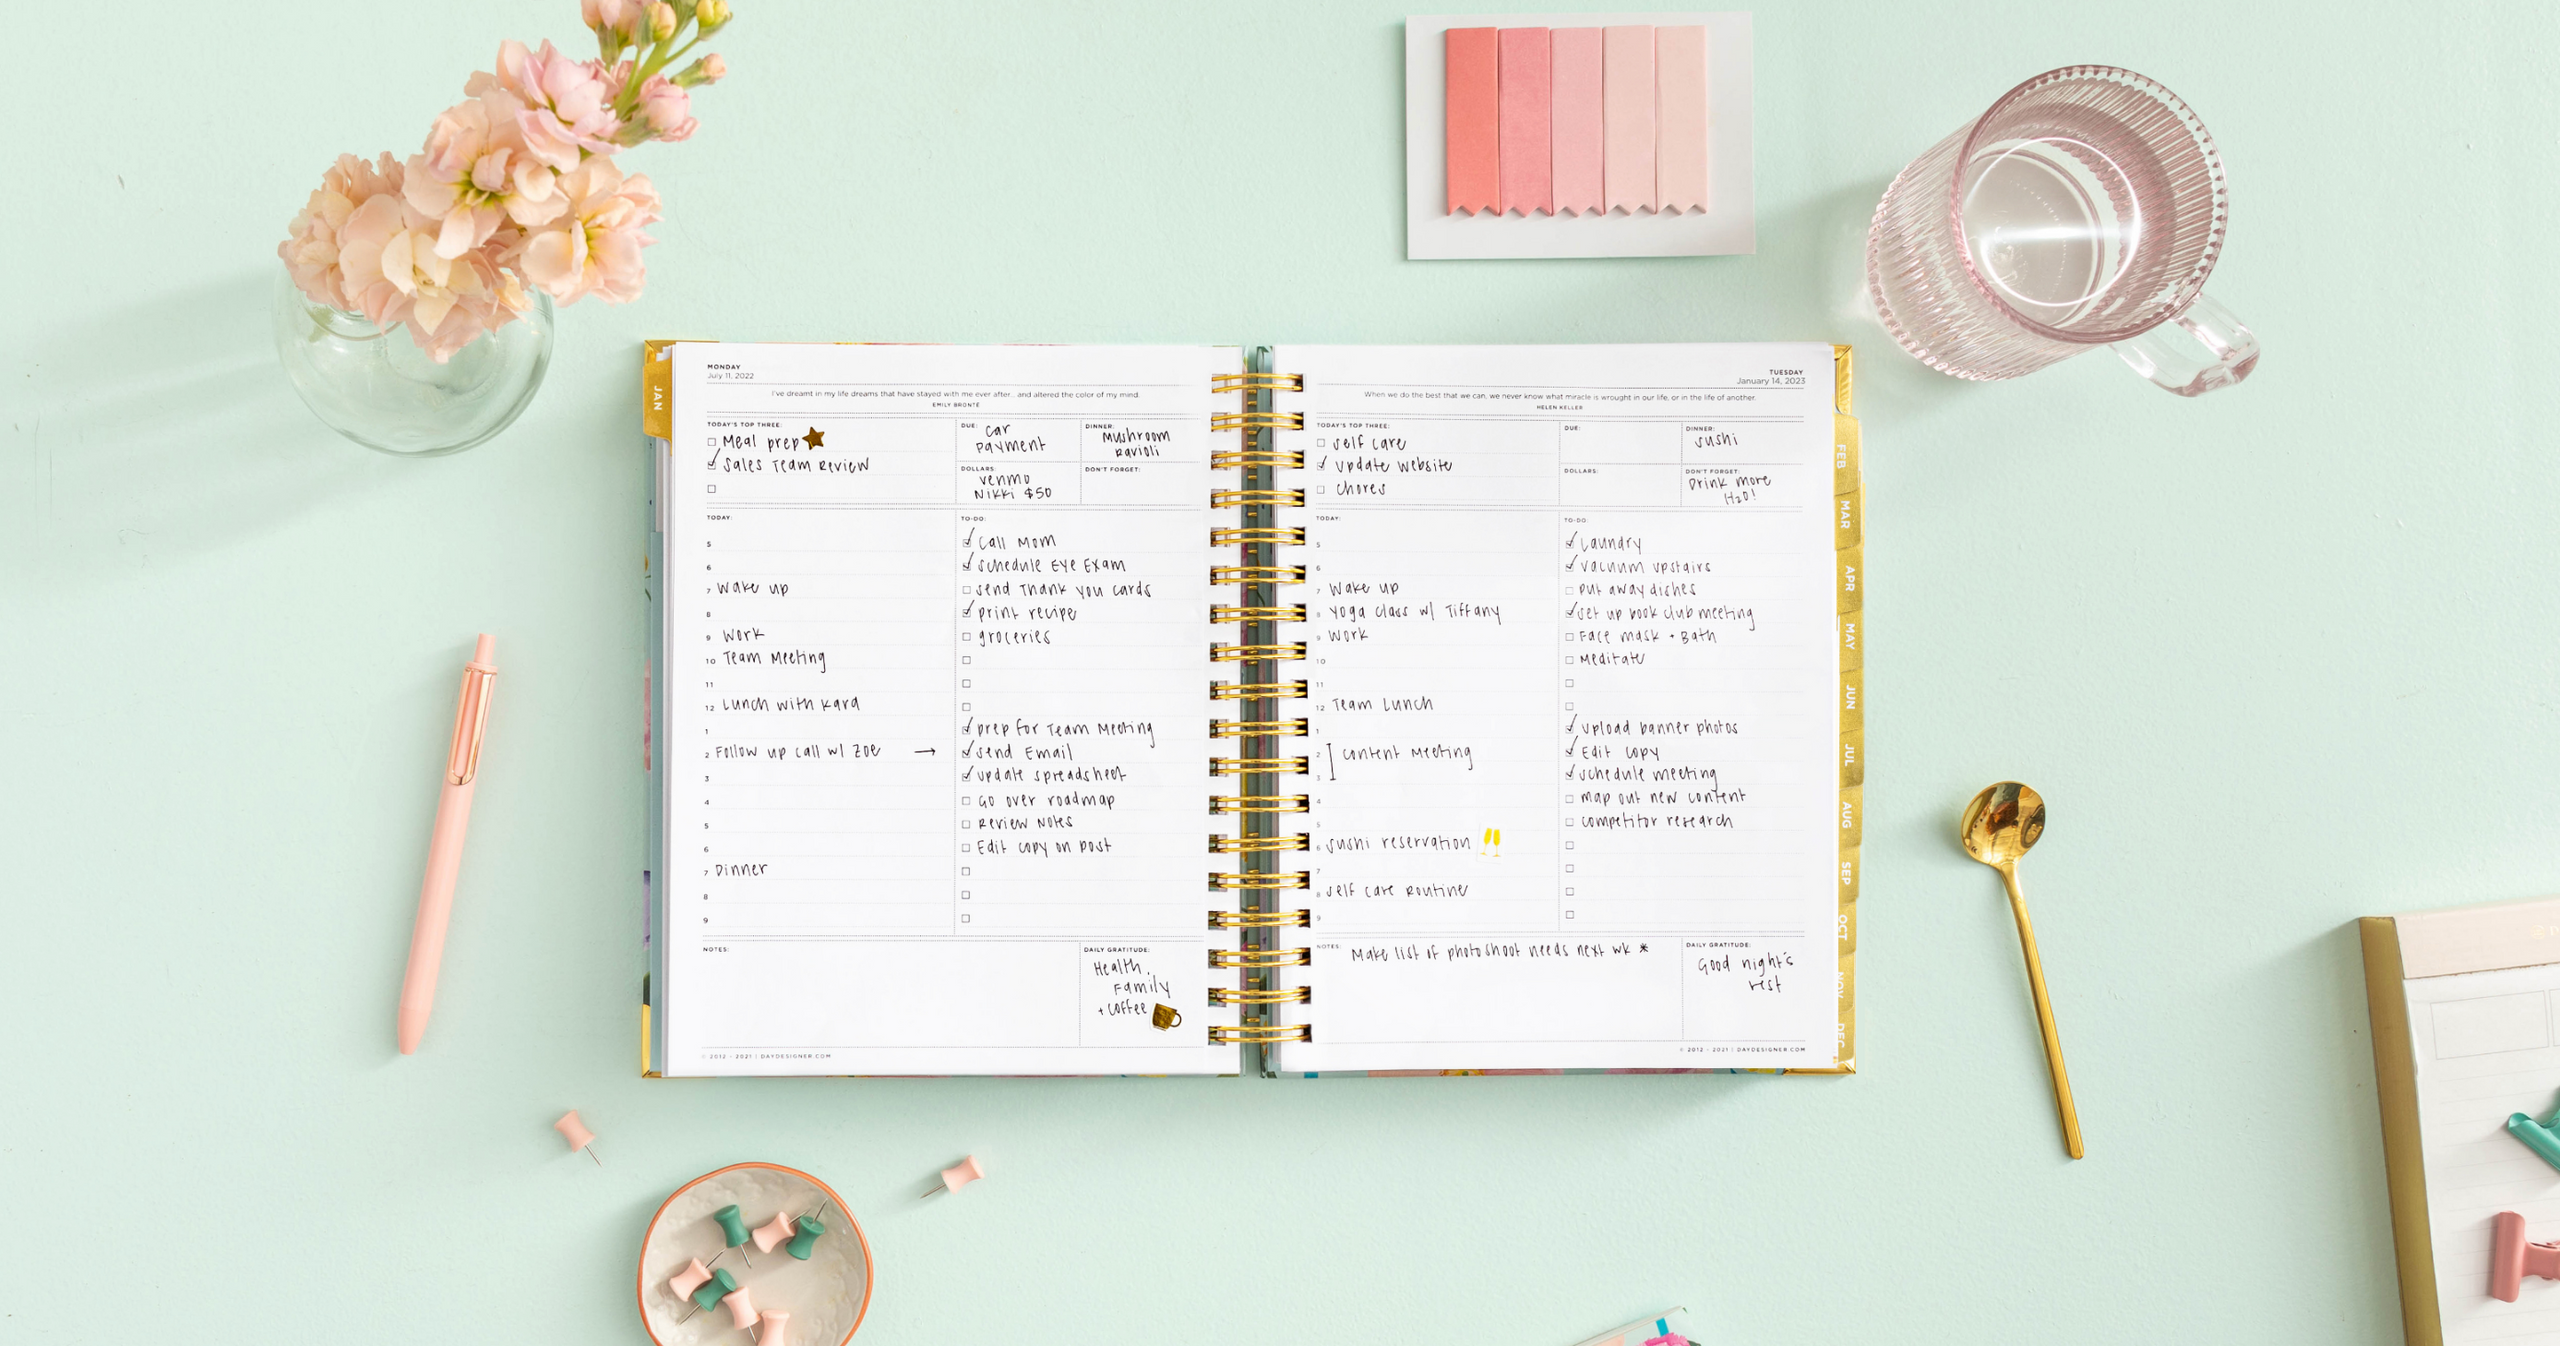 JAN
MONDAY
July 11, 2022
I've dreamt in my life dreams that have stayed with me ever after... and altered the color of my mind.
EMILY BRONTË
TODAY'S TOP THREE:
Meal prep
Sales Team Review
DUE:
car
payment
DINNER:
mushroom
ravioli
DOLLARS:
venmo
Nikki $50
DON'T FORGET:
TODAY:
5
6
7 Wake up
8
9 Work
10 Team Meeting
11
12 Lunch with Kara
1
2 Follow up call w/ Zoe →
3
4
5
6
7 Dinner
8
9
TO-DO:
Call Mom
Schedule Eye Exam
Send Thank you cards
print recipe
groceries
prep for Team Meeting
Send Email
update spreadsheet
Go over roadmap
Review Notes
Edit copy on post
NOTES:
DAILY GRATITUDE:
Health,
Family
+ coffee
© 2012 - 2021 | DAYDESIGNER.COM
TUESDAY
January 14, 2023
When we do the best that we can, we never know what miracle is wrought in our life, or in the life of another.
HELEN KELLER
TODAY'S TOP THREE:
self care
update website
chores
DUE:
DINNER:
sushi
DOLLARS:
DON'T FORGET:
Drink more
H2O!
TODAY:
5
6
7 Wake up
8 Yoga class w/ Tiffany
9 Work
10
11
12 Team Lunch
1
2 Content Meeting
3
4
5
6 sushi reservation
7
8 self care Routine
9
TO-DO:
Laundry
vacuum upstairs
put away dishes
set up book club meeting
Face mask + Bath
Meditate
upload banner photos
Edit copy
schedule meeting
map out new content
competitor research
NOTES: Make list of photoshoot needs next wk *
DAILY GRATITUDE:
Good night's
rest
© 2012 - 2021 | DAYDESIGNER.COM
FEB
MAR
APR
MAY
JUN
JUL
AUG
SEP
OCT
NOV
DEC